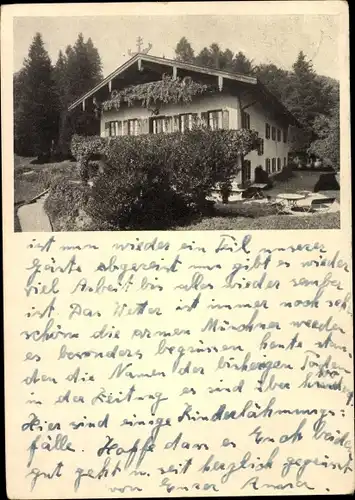 ist nun wieder ein Teil unserer
Gäste abgereist nun gibt es wieder
viel Arbeit bis alles wieder sauber
ist. Das Wetter ist immer noch seh
schön die armen Münchner werden
es besonders begrüssen, heute stan-
den die Namen der bisherigen Toten
in der Zeitung es sind über
Hier sind einige Kinderlähmungs-
fälle. Hoffe dass es Euch beiden
gut geht u. seit herzlich gegrüsst
von Eurer